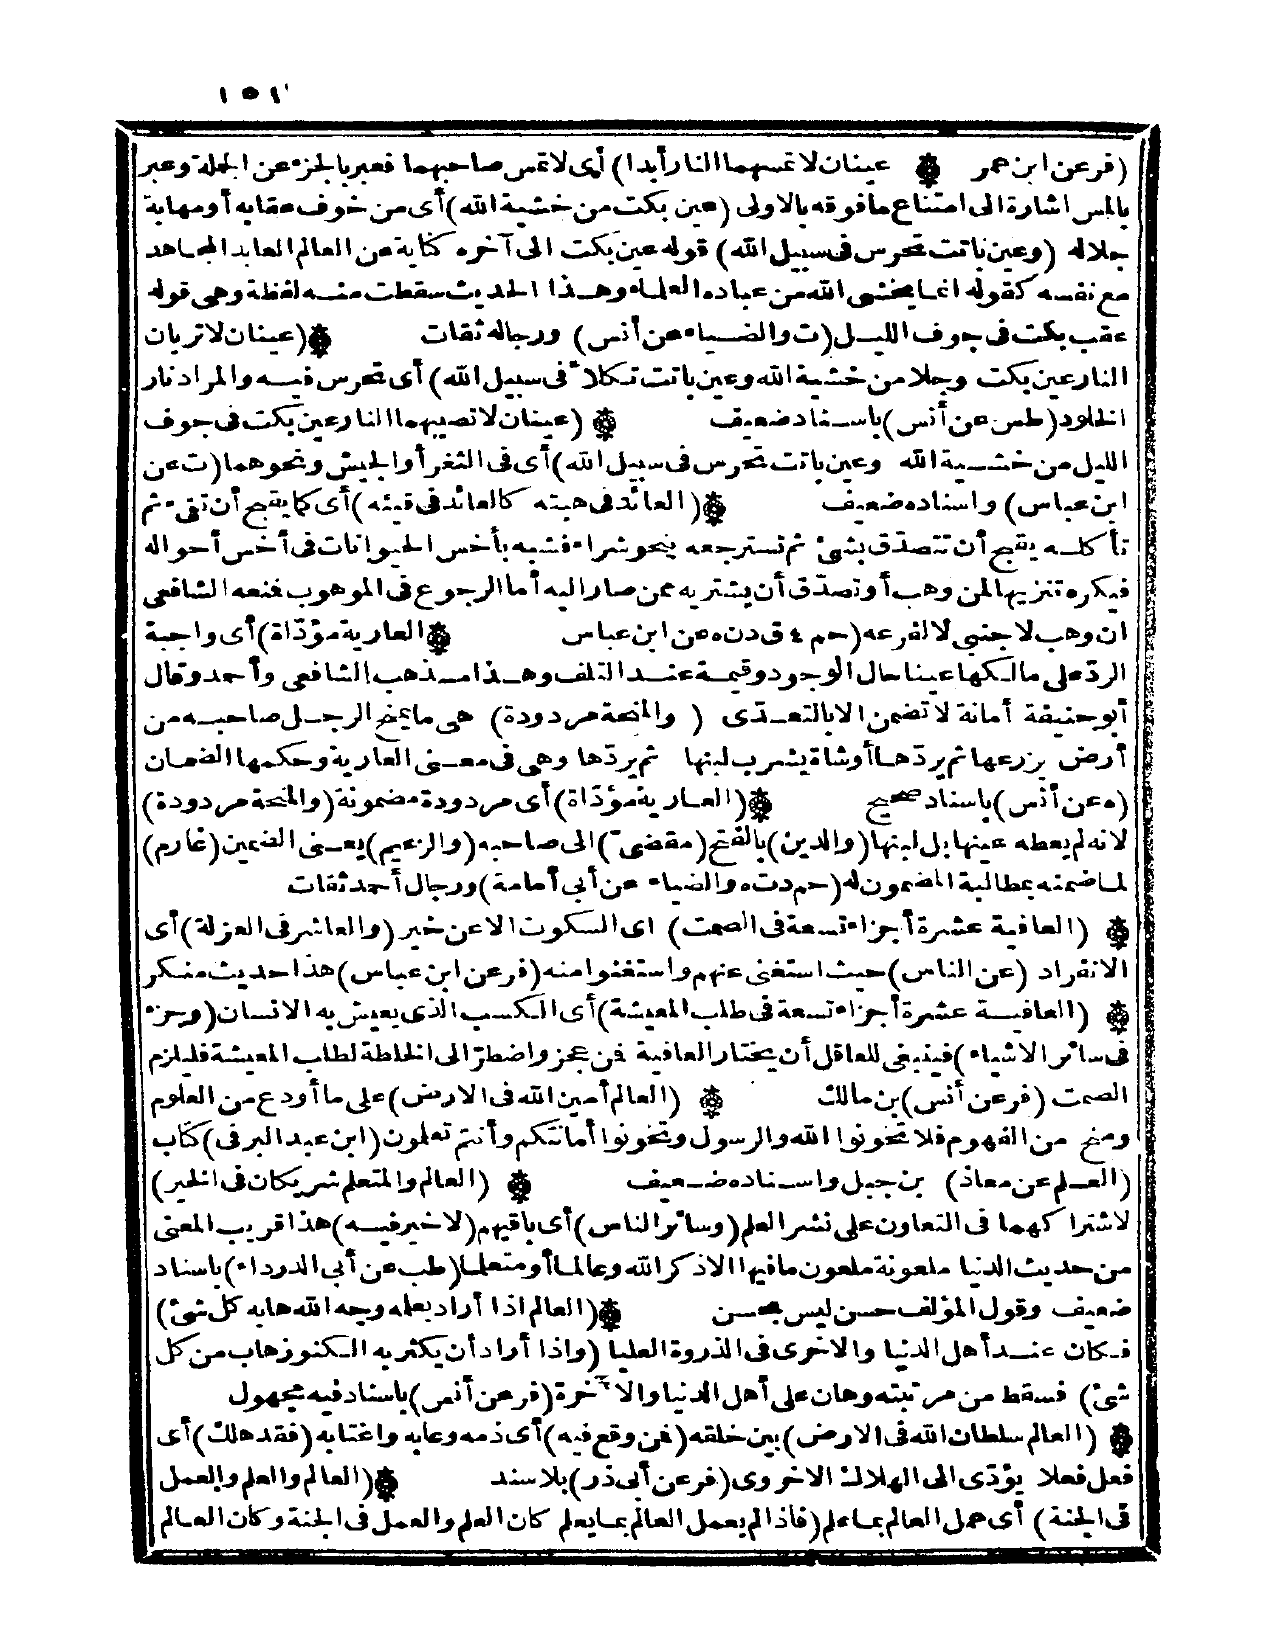 ١٥٦
(فر عن ابن عمر ۞ عينان لا تمسهما النار أبدا) أى لا تمس صاحبهما فعبر بالجزء عن الجملة وعبر
بالمس اشارة الى امتناع ما فوقه بالاولى (عين بكت من خشية الله) أى من خوف عقابه أو مهابة
جلاله (وعين باتت تحرس فى سبيل الله) قوله عين بكت الى آخره كناية عن العالم العابد المجاهد
مع نفسه كقوله انما يخشى الله من عباده العلماء وهذا الحديث سقطت منه لفظة وهى قوله
عقب بكت فى جوف الليل (ت والضياء عن أنس) ورجاله ثقات ۞ (عينان لا تريان
النار عين بكت وجلا من خشية الله وعين باتت تكلا ٔ فى سبيل الله) أى تحرس فيه والمراد نار
الخلود (طس عن أنس) باسناد ضعيف ۞ (عينان لا تصيبهما النار عين بكت فى جوف
الليل من خشية الله وعين باتت تحرس فى سبيل الله) أى فى الثغر أو الجيش ونحوهما (ت عن
ابن عباس) واسناده ضعيف ۞ (العائد فى هبته كالعائد فى قيئه) أى كما يقبح أن تقىء ثم
تأكله يقبح أن تتصدق بشئ ثم تسترجعه بنحو شراء فشبه بأخس الحيوانات فى أخس أحواله
فيكره تنزيها لمن وهب أو تصدّق أن يشتريه ممن صار اليه أما الرجوع فى الموهوب فمنعه الشافعى
ان وهب لاجنبى لا لفرعه (حم ٤ ق د ن ه عن ابن عباس ۞ العارية مؤدّاة) أى واجبة
الردّ على مالكها عينا حال الوجود وقيمة عند التلف وهذا مذهب الشافعى وأحمد وقال
أبو حنيفة أمانة لا تضمن الا بالتعدّى (والمنحة مردودة) هى ما يمنح الرجل صاحبه من
أرض يزرعها ثم يردّها أو شاة يشرب لبنها ثم يردّها وهى فى معنى العارية وحكمها الضمان
(ه عن أنس) باسناد صحيح ۞ (العارية مؤدّاة) أى مردودة مضمونة (والمنحة مردودة)
لانه لم يعطه عينها بل لبنها (والدين) بالفتح (مقضىّ) الى صاحبه (والزعيم) يعنى الضمين (غارم)
لما ضمنه بمطالبة المضمون له (حم د ت ه والضياء عن أبى أمامة) ورجال أحمد ثقات
۞ (العافية عشرة أجزاء تسعة فى الصمت) اى السكوت الا عن خير (والعاشر فى العزلة) أى
الانفراد (عن الناس) حيث استغنى عنهم واستغنوا منه (فر عن ابن عباس) هذا حديث منكر
۞ (العافية عشرة أجزاء تسعة فى طلب المعيشة) أى الكسب الذى يعيش به الانسان (وجزء
فى سائر الاشياء) فينبغى للعاقل أن يختار العافية فمن عجز واضطرّ الى الخلطة لطلب المعيشة فليلزم
الصمت (فر عن أنس) بن مالك ۞ (العالم أمين الله فى الارض) على ما أودع من العلوم
ومنح من الفهوم فلا تخونوا الله والرسول وتخونوا أماناتكم وأنتم تعلمون (ابن عبد البر فى) كتاب
(العلم عن معاذ) بن جبل واسناده ضعيف ۞ (العالم والمتعلم شريكان فى الخير)
لاشتراكهما فى التعاون على نشر العلم (وسائر الناس) أى باقيهم (لا خير فيه) هذا قريب المعنى
من حديث الدنيا ملعونة ملعون ما فيها الا ذكر الله وعالما أو متعلما (طب عن أبى الدرداء) باسناد
ضعيف وقول المؤلف حسن ليس بحسن ۞ (العالم اذا أراد بعلمه وجه الله هابه كل شئ)
فكان عند أهل الدنيا والاخرى فى الذروة العليا (واذا أراد أن يكثر به الكنوز هاب من كل
شئ) فسقط من مرتبته وهان على أهل الدنيا والا ٓخرة (فر عن أنس) باسناد فيه مجهول
۞ (العالم سلطان الله فى الارض) بين خلقه (فمن وقع فيه) أى ذمه وعابه واغتابه (فقد هلك) أى
فعل فعلا يؤدّى الى الهلاك الاخروى (فر عن أبى ذر) بلا سند ۞ (العالم والعلم والعمل
فى الجنة) أى عمل العالم بما علم (فاذا لم يعمل العالم بما يعلم كان العلم والعمل فى الجنة وكان العالم